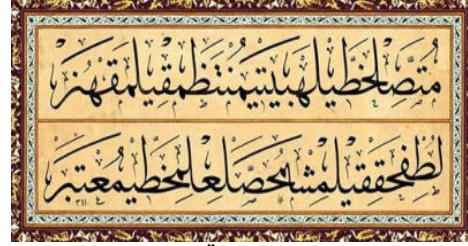 متصل خطيله بيتي منتظم قيلمق هنر
لطف حق قيلمش محصل علم خطي معتبر